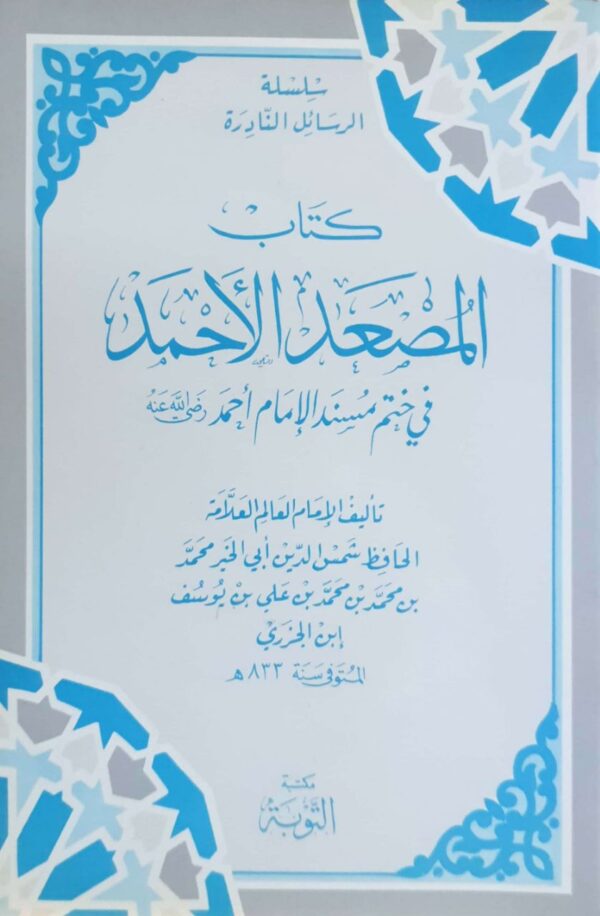 سِلسِلة
الرسَائل النَّادِرَة
كتَاب
المُصْعَد الأَحْمَد
في ختم مُسنَد الإمَام أحمَد رَضيَ اللّه عَنهُ
تأليف الإمَام العَالِم العَلَّامَة
الحَافِظ شَمسُ الدِّين أبي الخَير محمَّد
بن محمَّد بن محمَّد بن علي بن يُوسُف
إبن الجَزَري
المُتوَفى سَنة ٨٣٣ ھ
مكتبة
التَّوبَة